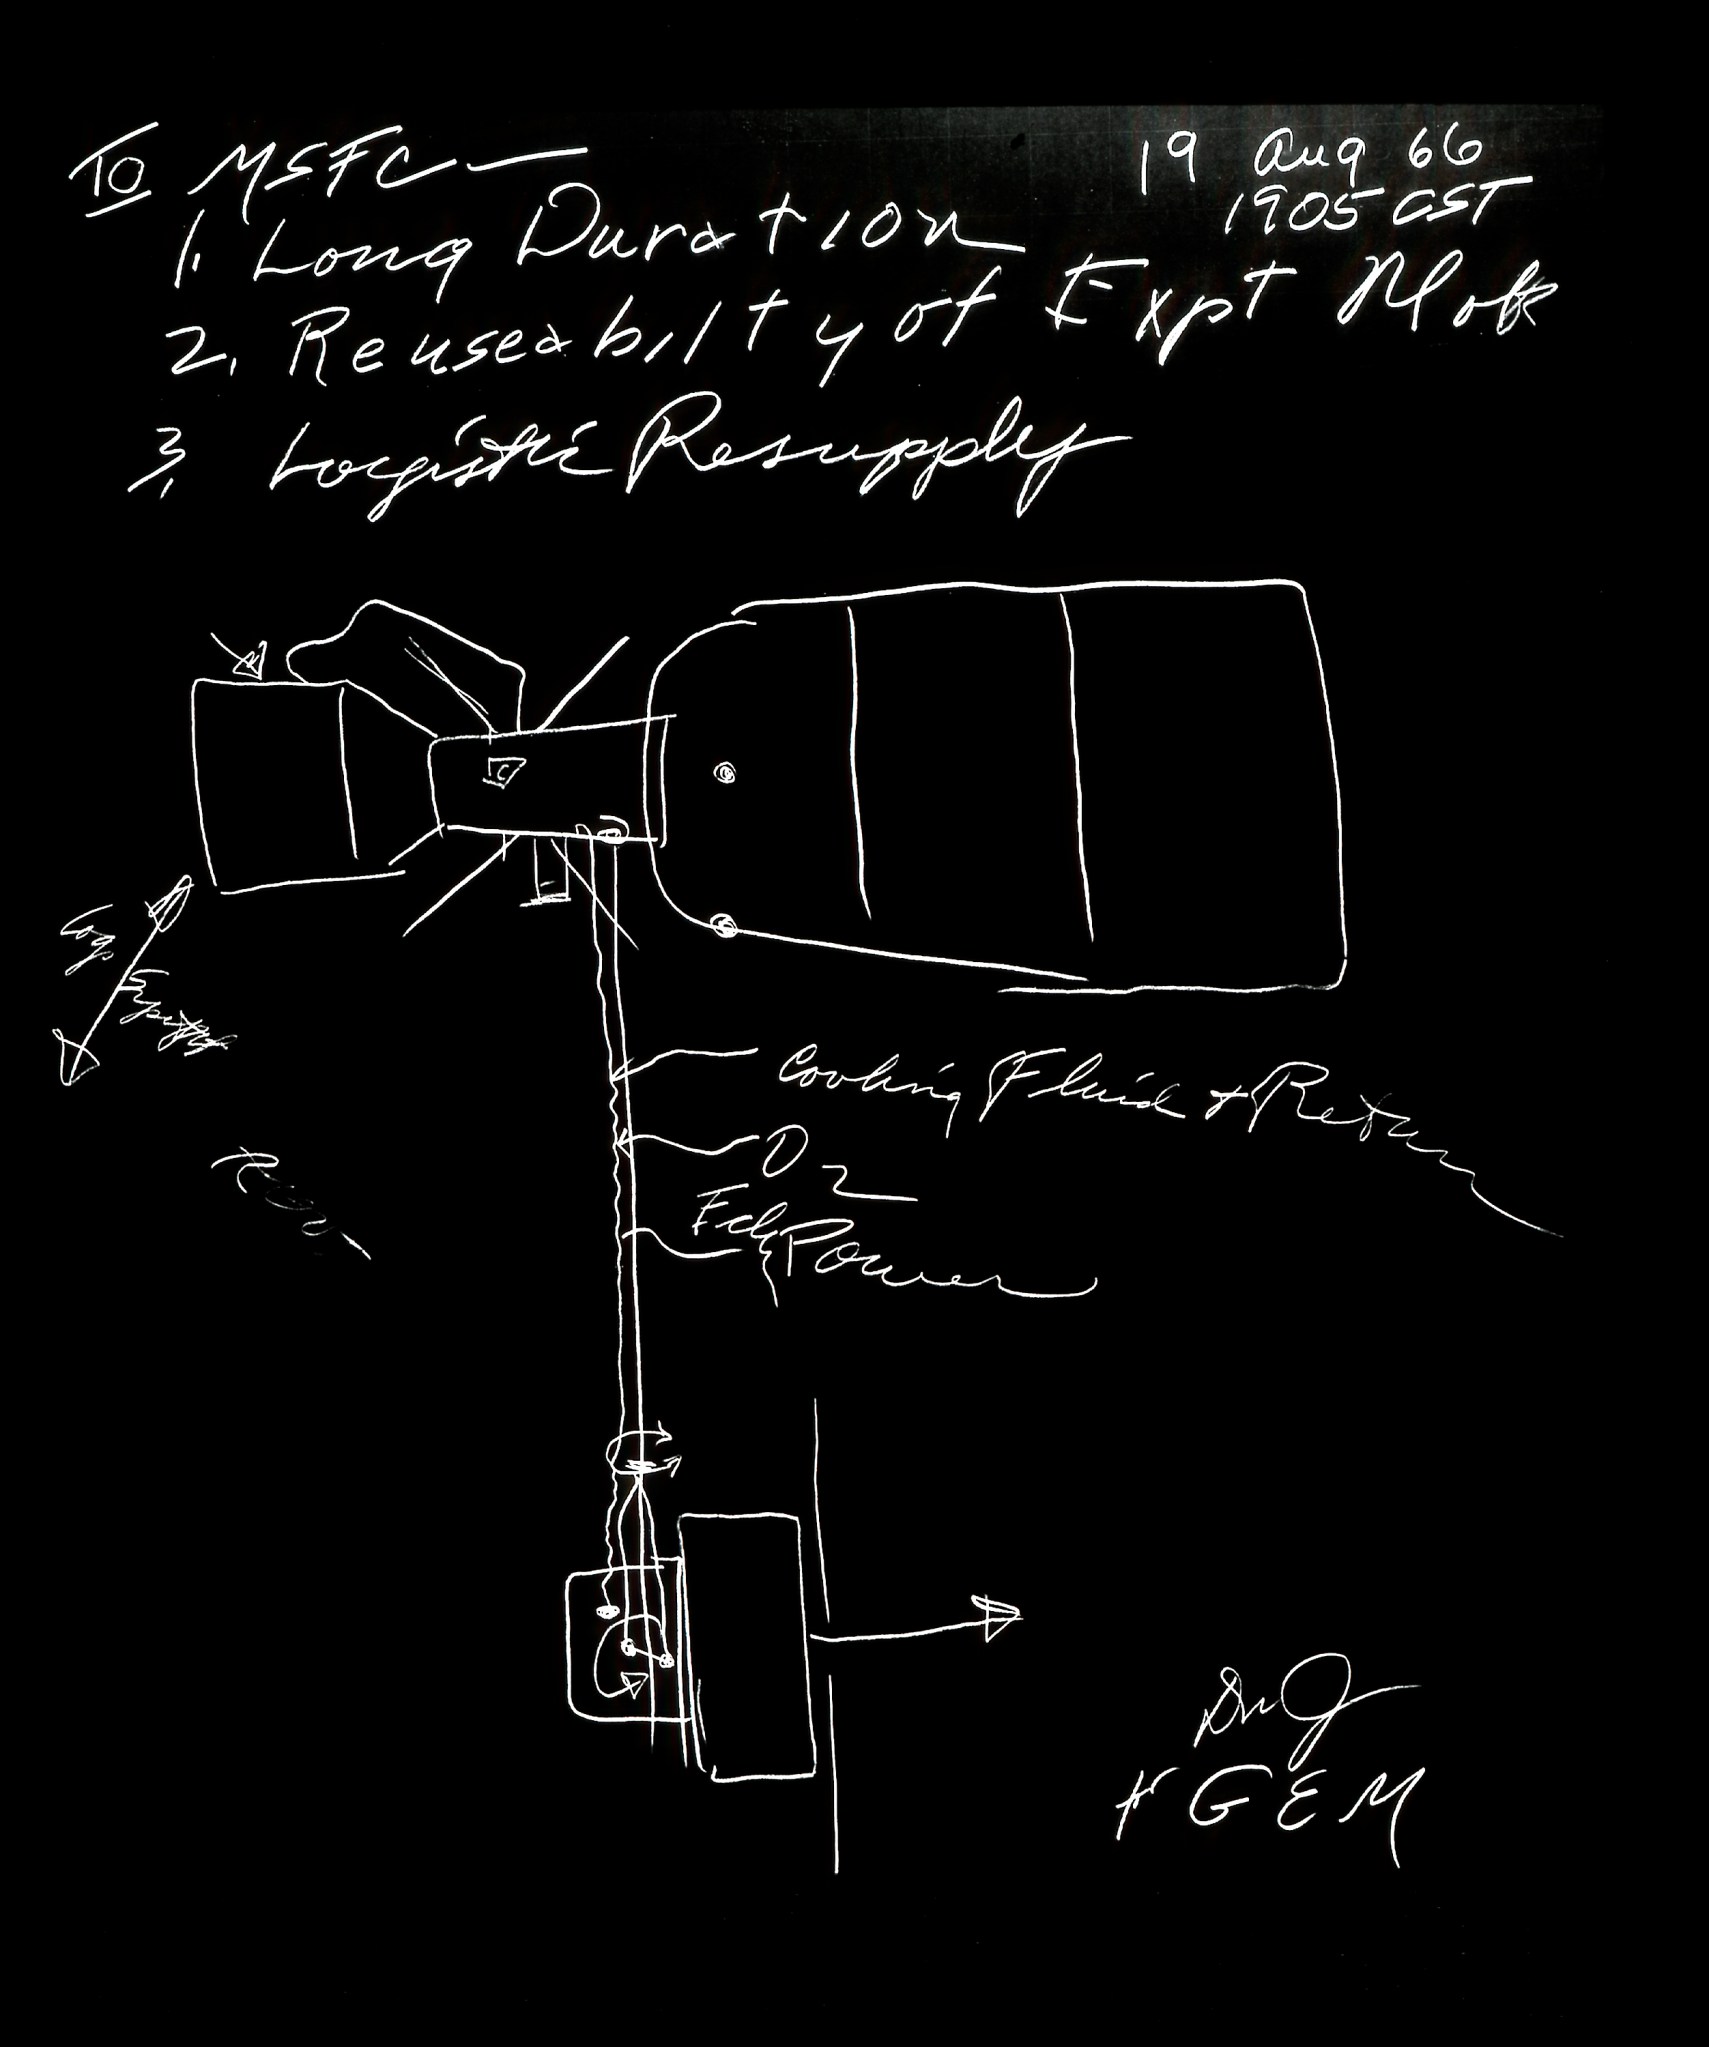 To MSFC —
19 Aug 66
1905 CST
1. Long Duration
2. Reuseabilty of Expt Mod
3. Logistic Resupply
C
Cooling Fluid & Return
O2
Power
GEM